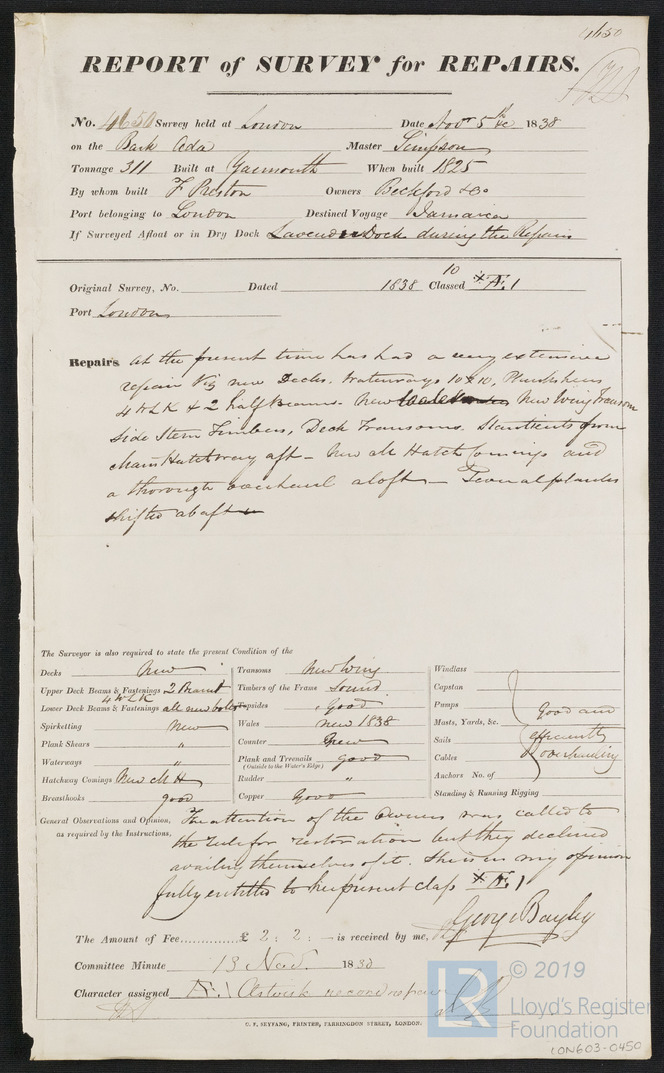 4650
REPORT of SURVEY for REPAIRS.
No. 4650 Survey held at London Date Novr 5th &c 1838
on the Bark Ada Master Simpson
Tonnage 311 Built at Yarmouth When built 1825
By whom built F Preston Owners Beckford & Co
Port belonging to London Destined Voyage Jamaica
If Surveyed Afloat or in Dry Dock Lavender Dock during the Repairs
Original Survey, No. Dated 10 1838 Classed Æ 1
Port London
Repairs. At the present time has had a very extensive
repair Viz new Decks. Waterways 10 x 10, Plankshears
& 2 half Beams. New New Wing Transom
Side Stern Timbers, Deck Transoms. Stantients from
Main Hatchway aft - New M Hatch Comings and
a thorough overhaul aloft - Several planks
shifted abaft
The Surveyor is also required to state the present Condition of the
Decks New
Upper Deck Beams & Fastenings
Lower Deck Beams & Fastenings all new bolts
Spirketting New
Plank Shears "
Waterways "
Hatchway Comings New M H
Breasthooks good
Transoms New Wing
Timbers of the Frame Sound
Topsides good
Wales New 1838
Counter New
Plank and Treenails good
(Outside to the Water's Edge)
Rudder "
Copper Good
Windlass
Capstan
Pumps
Masts, Yards, &c.
Sails
Cables
Anchors No. of
Standing & Running Rigging
Good and
efficient
overhauling
General Observations and Opinion, The attention of the Owners was called to
as required by the Instructions, the Rule for restoration but they declined
availing themselves of it. She is in my opinion
fully entitled to her present class Æ 1
George Bayley
The Amount of Fee...............£ 2 : 2 : — is received by me,
Committee Minute 13 Novr. 1838
Character assigned Æ 1 Astrisk record repairs
C. F. SEYFANG, PRINTER, FARRINGDON STREET, LONDON.
LR © 2019
Lloyd's Register
Foundation
LON603-0450